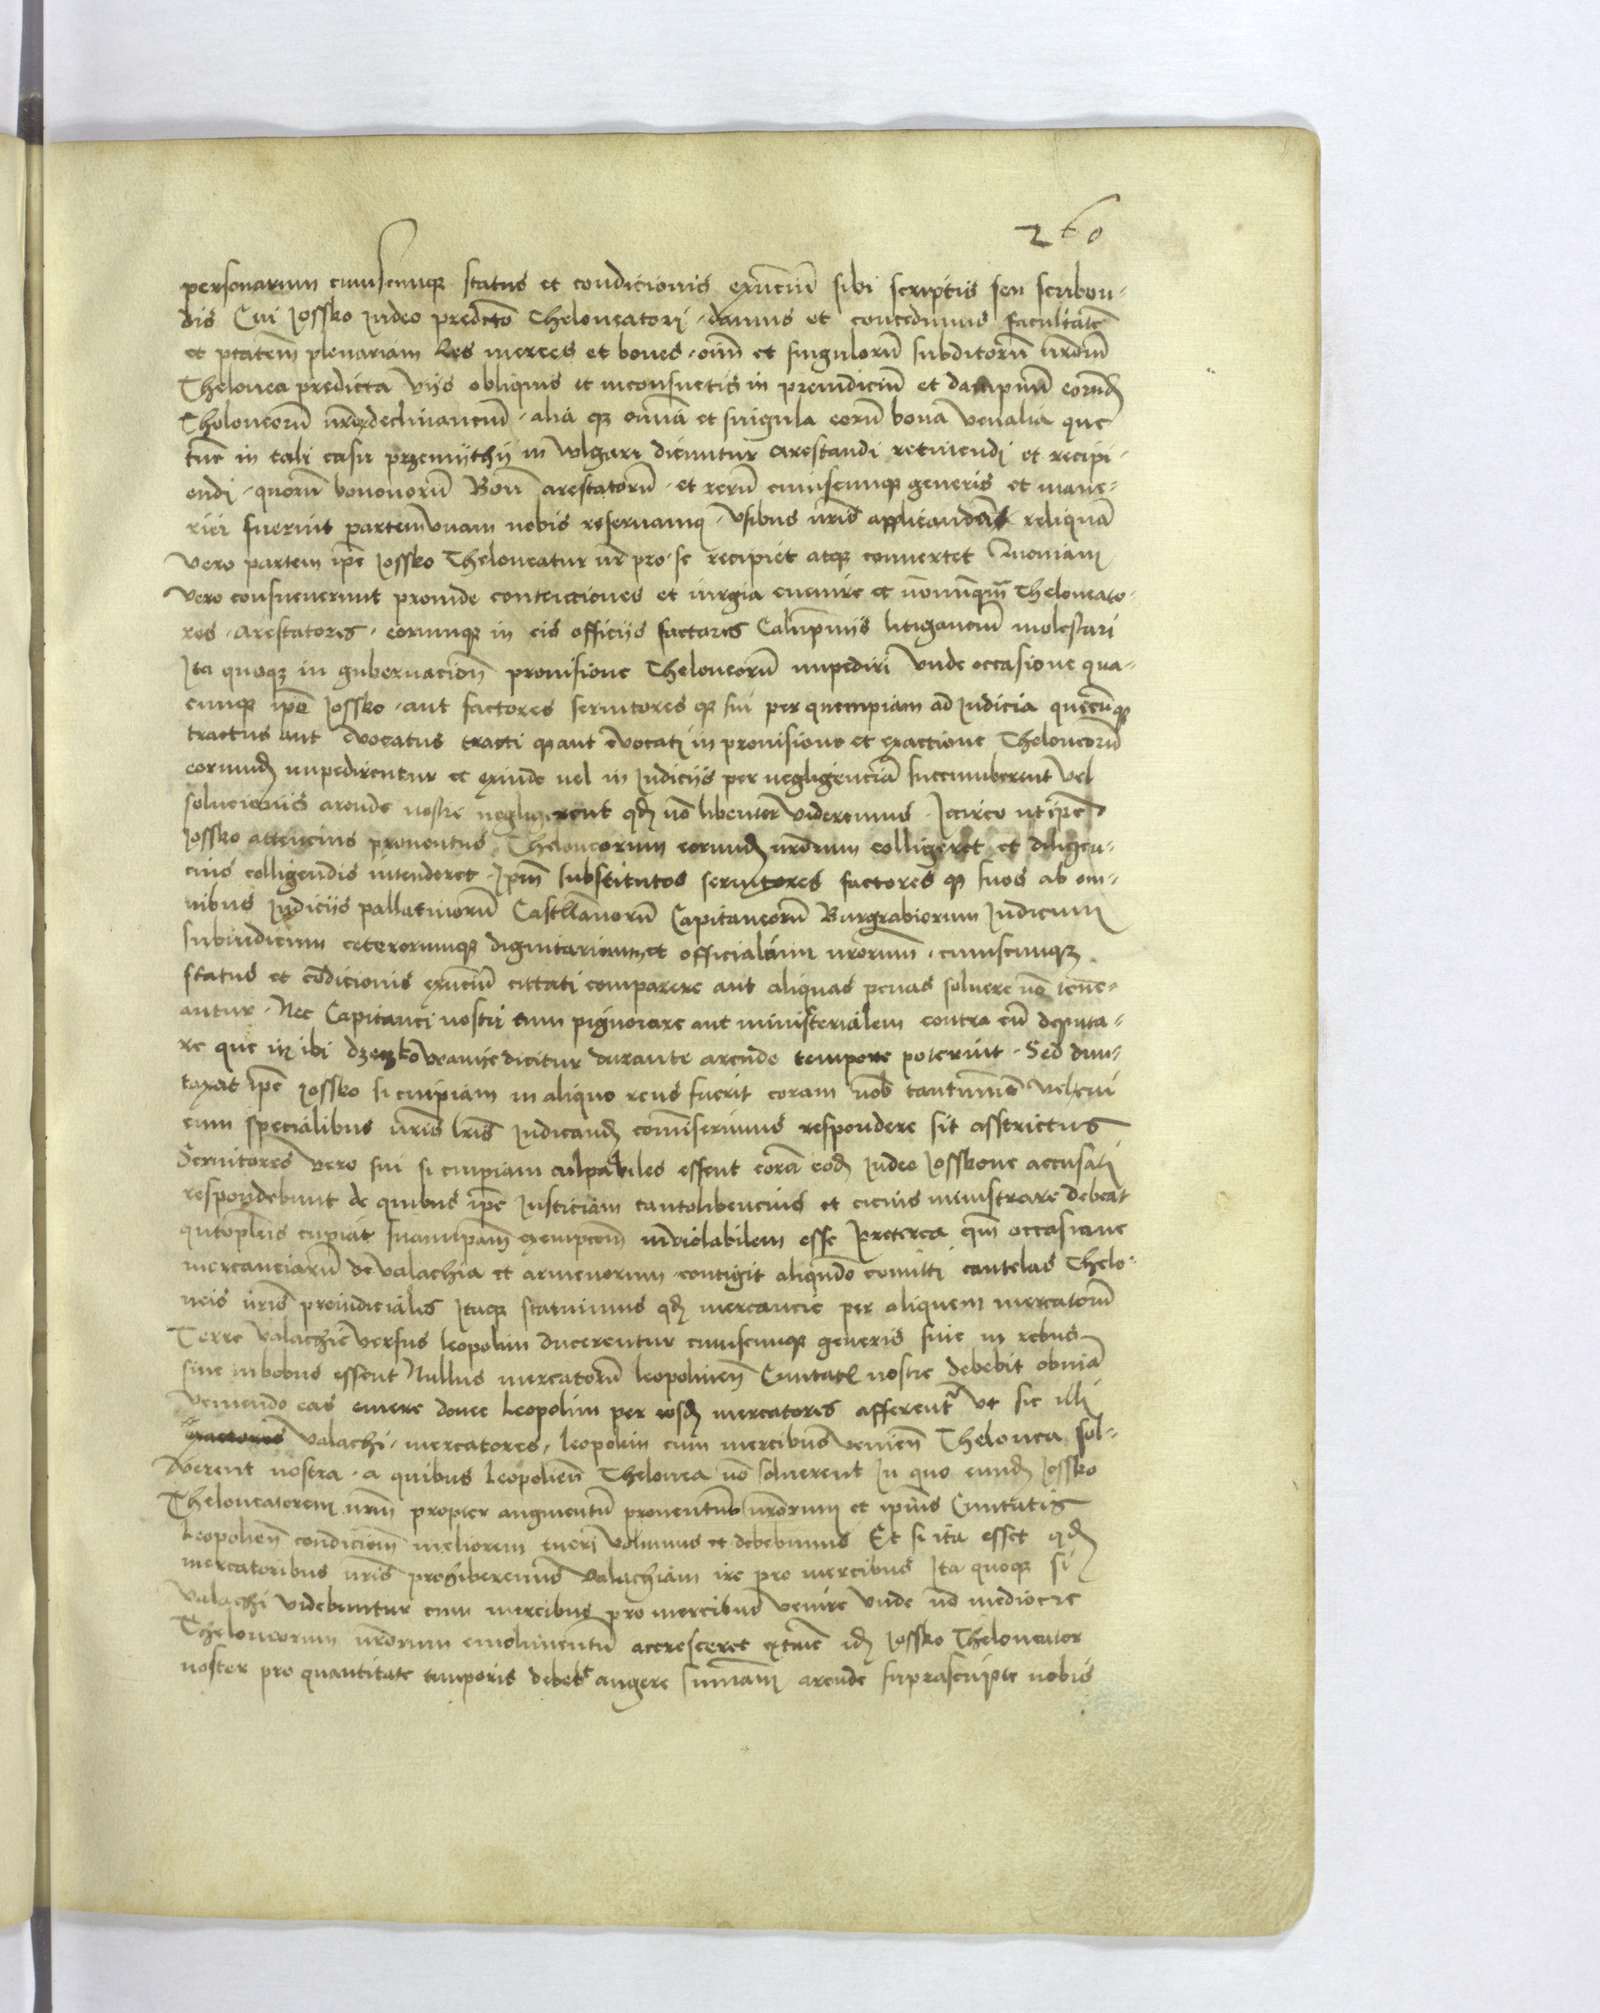 260
personarum cuiuscunque status et condicionis existenciu sibi scriptis seu scriben-
dis Cui Jossko Judeo predicto Theloneatori damus et concedimus facultate
et ptatem plenariam Res merces et boues oim et singulorum subditorum nrorum
Thelonea predicta vijs obliquis et inconsuetis in preiudiciu et dampnu eorund
Theloneorum nrorum declinanciu alia qz omnia et singula eorum bona venalia que
tunc in tali casu przemijthij in wlgari dicuntur arestandi retinendi et recipi-
endi quorum bonorum Boum arestatorum et rerum cuiuscunque generis et mane-
riei fuerint partem vnam nobis reseruamus vsibus nris applicandam reliquam
vero partem ipe Jossko Theloneator nr pro se recipiet atque conuertet Quoniam
vero consueuerunt proinde contencciones et iurgia euenire et nonnunqm Theloneato-
res arestatores eorumque in eis officijs factores Calumpnijs litiganciu molestari
Ita quoque in gubernacione prouisione Theloneorum impediri Vnde occasione qua-
cunque ipe Jossko aut factores seruitores qz sui per quempiam ad Judicia quecunque
tractus aut euocatus tracti qz aut euocati in prouisione et exactione Theloneorum
eorumd impedirentur et exinde vel in Judicijs per negligencia succumberent vel
soluciones arende nostre negligerent qd no libenter videremus Iccirco ut ipe
Jossko attencius prouentus Theloneorum eorumd nrorum colligeret et diligen-
cius colligendis intenderet Ipm substitutos seruitores factores qz suos ab om-
nibus Judicijs pallatinorum Castellanorum Capitaneorum Burgrabiorum Judicum
subiudicum ceterorumque dignitariorum et officialium nrorum cuiuscunque
status et condicionis existenciu cittati comparere aut aliquas penas soluere no tene-
antur Nec Capitanei nostri eum pignorare aut ministerialem contra eu deputa-
re que ibi dicitur durante arende tempore poterint Sed dun-
taxat ipe Jossko si cuipiam in aliquo reus fuerit coram nob tantumodo vel cui
eum specialibus nris lris Judicand comiserimus respondere sit asstrictus
Seruitores vero sui si cuipiam culpabiles essent cora eod Judeo Josskone accusati
respondebunt de quibus ipe Justiciam tanto libencius et cicius ministrare debeat
cupiat exempcionem inviolabilem esse Preterea qm occasione
mercanciarum de Valachia et armenorum contigit aliquando comitti cautelas Thelo-
neis nris preiudiciales Itaque statuimus qd mercancie per aliquem mercatorum
Terre Valachie versus Leopolim ducerentur cuiuscunque generis siue in rebus
siue in bobus essent Nullus mercatorum leopolien Ciuitatis nostre debebit obuiam
veniendo eas emere donec Leopolim per eosd mercatores afferent vt sic illi
Valachi mercatores Leopolim cum mercibus venien Thelonea sol-
uerent nostra a quibus Leopolien Thelonea no soluerent In quo eund Jossko
Theloneatorem nrm propter augmentu prouentuum nrorum et ipius Ciuitatis
Leopolien condicionem meliorem tueri volumus et debebimus Et si ita esset qd
mercatoribus nris prohiberemus Valachiam ire pro mercibus Ita quoque si
Valachi videbuntur cum mercibus pro mercibus venire vnde no mediocre
Theloneorum nrorum emolumentu accresceret extunc id Jossko Theloneator
noster pro quantitate temporis debebit augere sumam arende suprascripte nobis